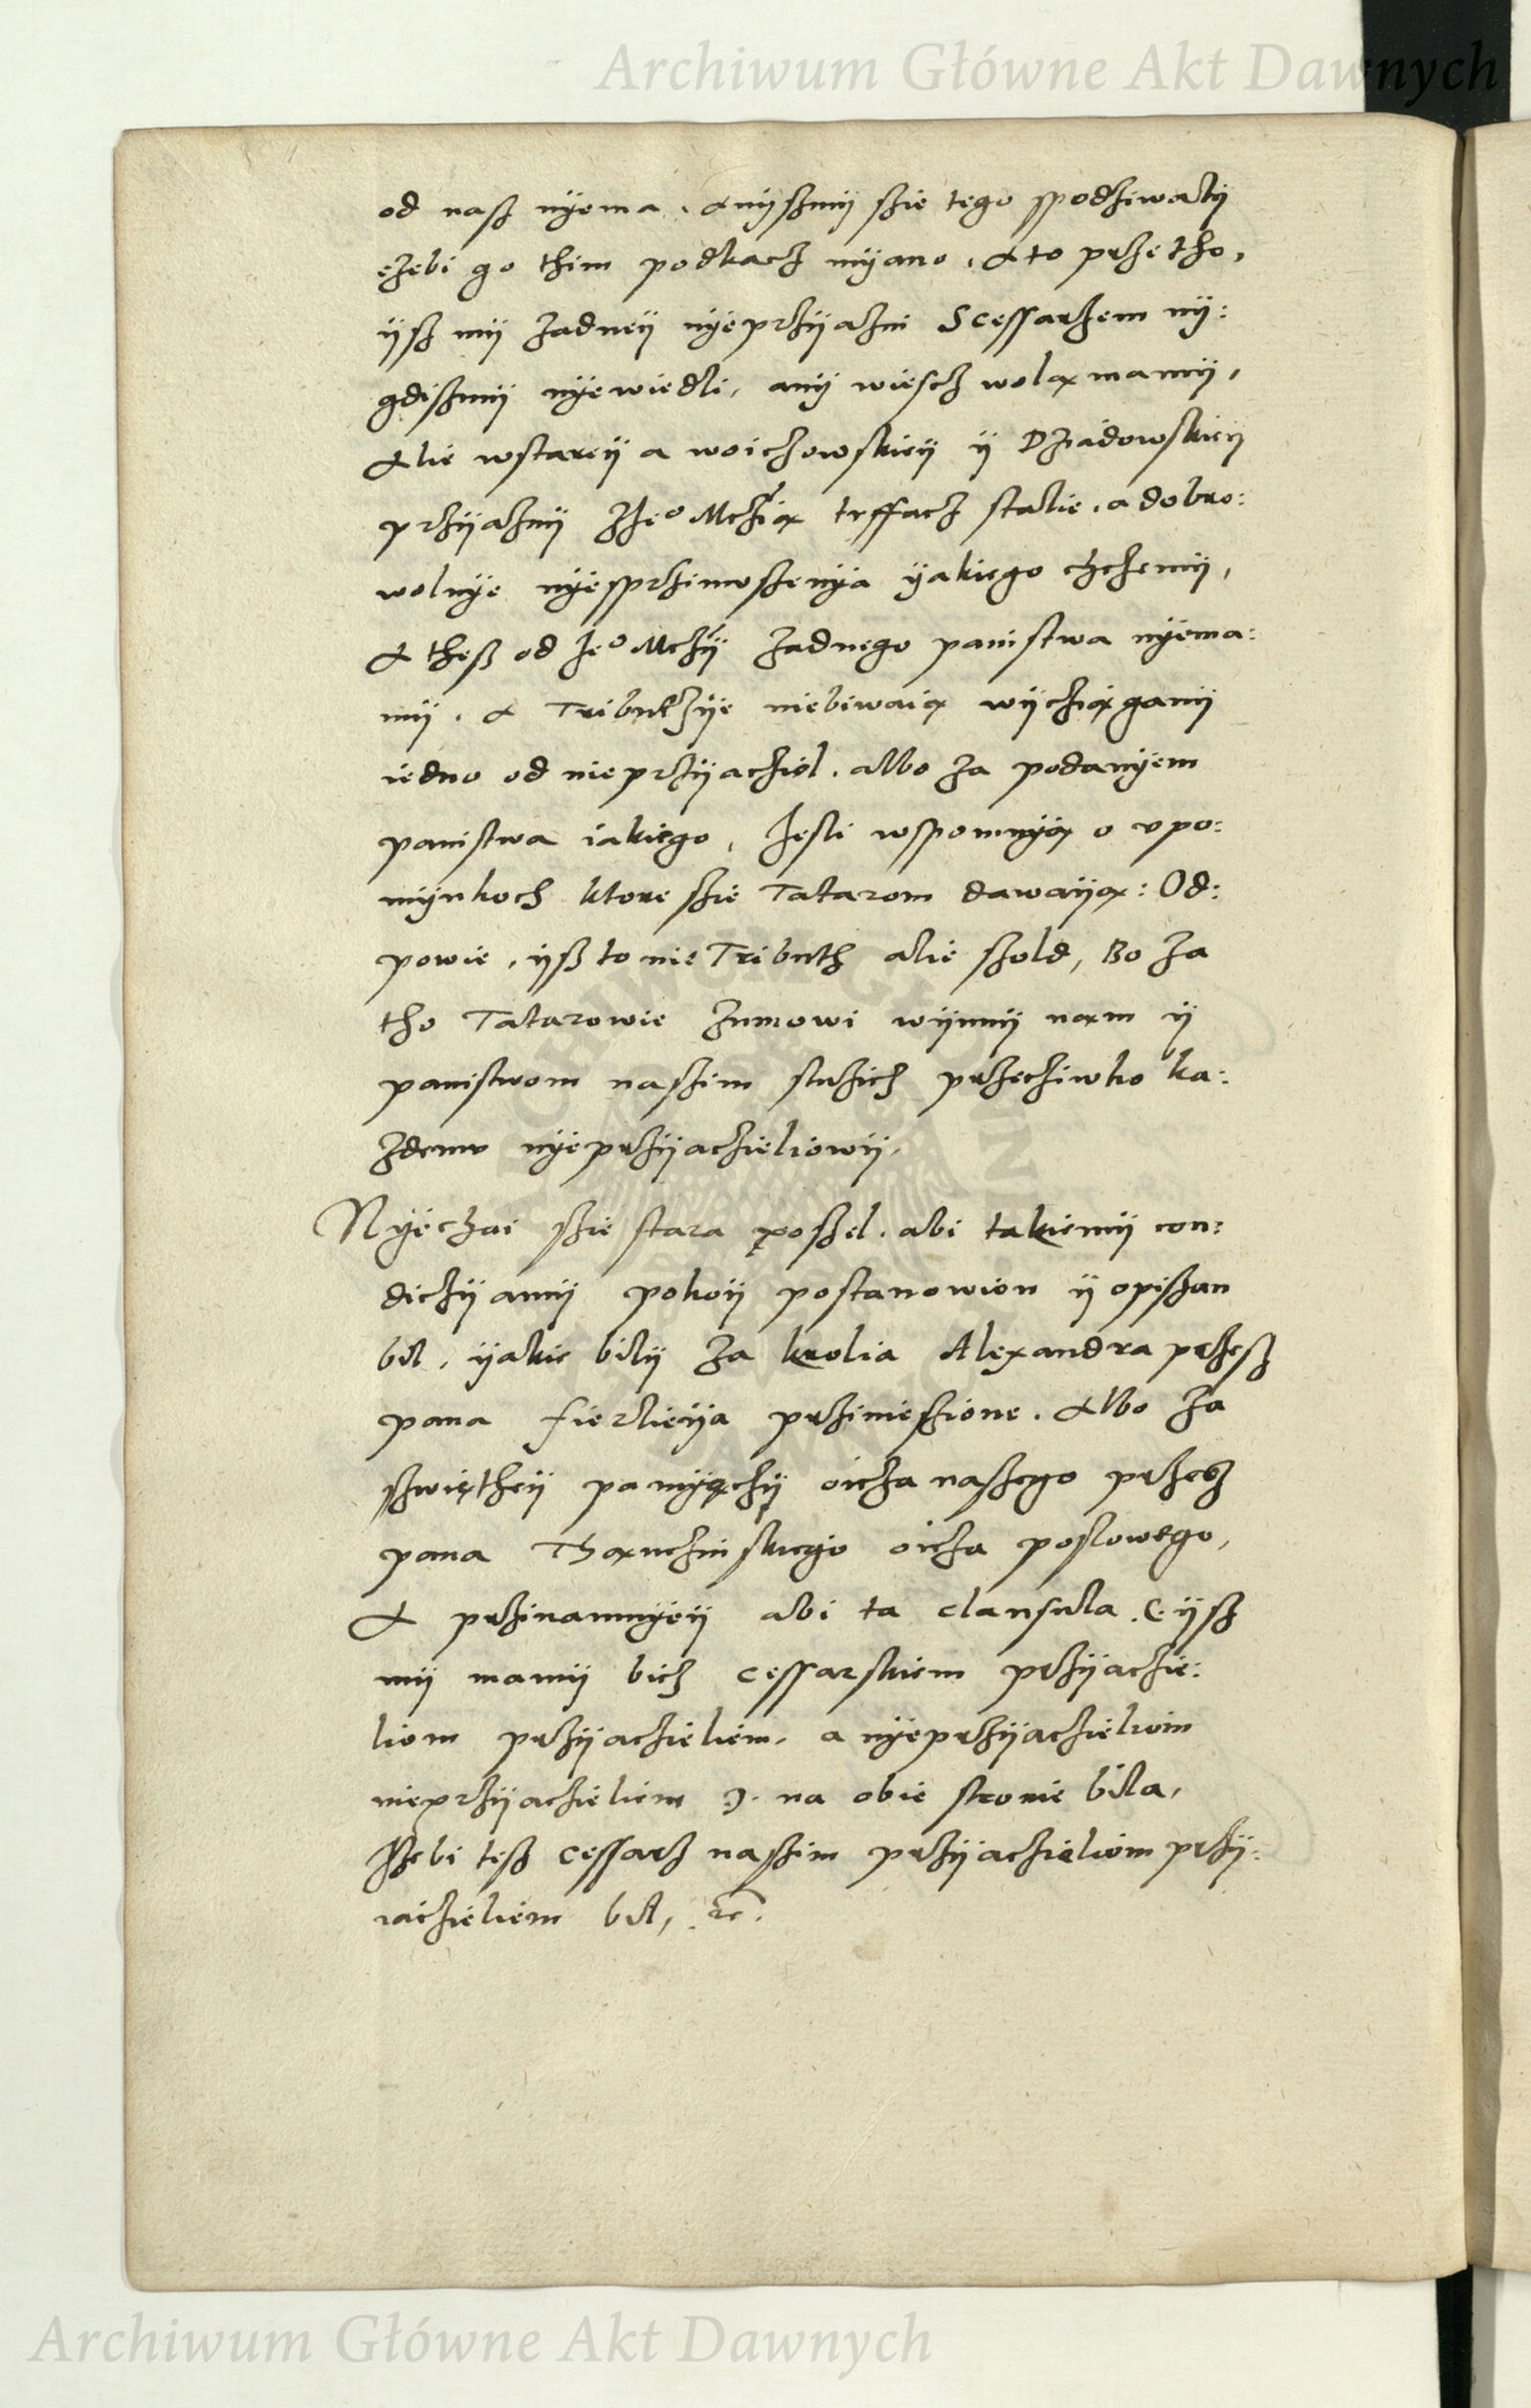 Archiwum Główne Akt Dawnych
od nasz nÿema. Anÿszmÿ szie tego spodziwalÿ
ezebi go thim podkacz mÿano. A to przetho,
ÿsz mÿ zadneÿ nÿeprzÿazni S cessarzem nÿ:
gdiszmÿ nÿewiedli, anÿ wiescz wolą mamÿ,
Alie w stareÿ a woiczowskieÿ ÿ Dziadowskieÿ
przÿaznÿ z Jeo Mczią trffacz stalie. a dobro:
wolnÿe nÿesprzimoszenÿa ÿakiego chczemÿ,
A thesz od Jeo Mczÿ zadnego panistwa nÿema:
mÿ. A Tributzÿe niebiwaią wÿcziągamÿ
iedno od nieprzÿacziol. albo za podanÿem
panistwa iakiego. Jesli wspomnÿą o upo:
mÿnkoch ktore szie Tatarom dawaÿą: Od:
powie, ÿsz to nie Tributh alie szold, Bo za
tho Tatarowie zumowi wÿnnÿ nam ÿ
panistwom naszim sluzicz przecziwko ka:
zdemu nÿeprzÿaczieliowÿ.
Nÿechai szie stara poszel. abi takiemÿ con:
diczÿamÿ pokoÿ postanowion ÿ opiszan
bil, ÿakie bilÿ za krolia Alexandra przesz
pana fierlieÿa przinieszione. Albo za
szwiętheÿ pamÿęchÿ oicza naszego przesz
pana Tharnczinskiego oicza poslowego,
A przinamnÿeÿ abi ta clausula. (: ÿsz
mÿ mamÿ bicz cessarskiem przÿaczie:
liom przÿaczieliem. a nÿeprzÿaczieliom
nieprzÿaczieliem :). na obie stronie bila,
zebi tesz cessarz naszim przÿaczieliom przÿ:
iaczieliem bil, etc.
Archiwum Główne Akt Dawnych